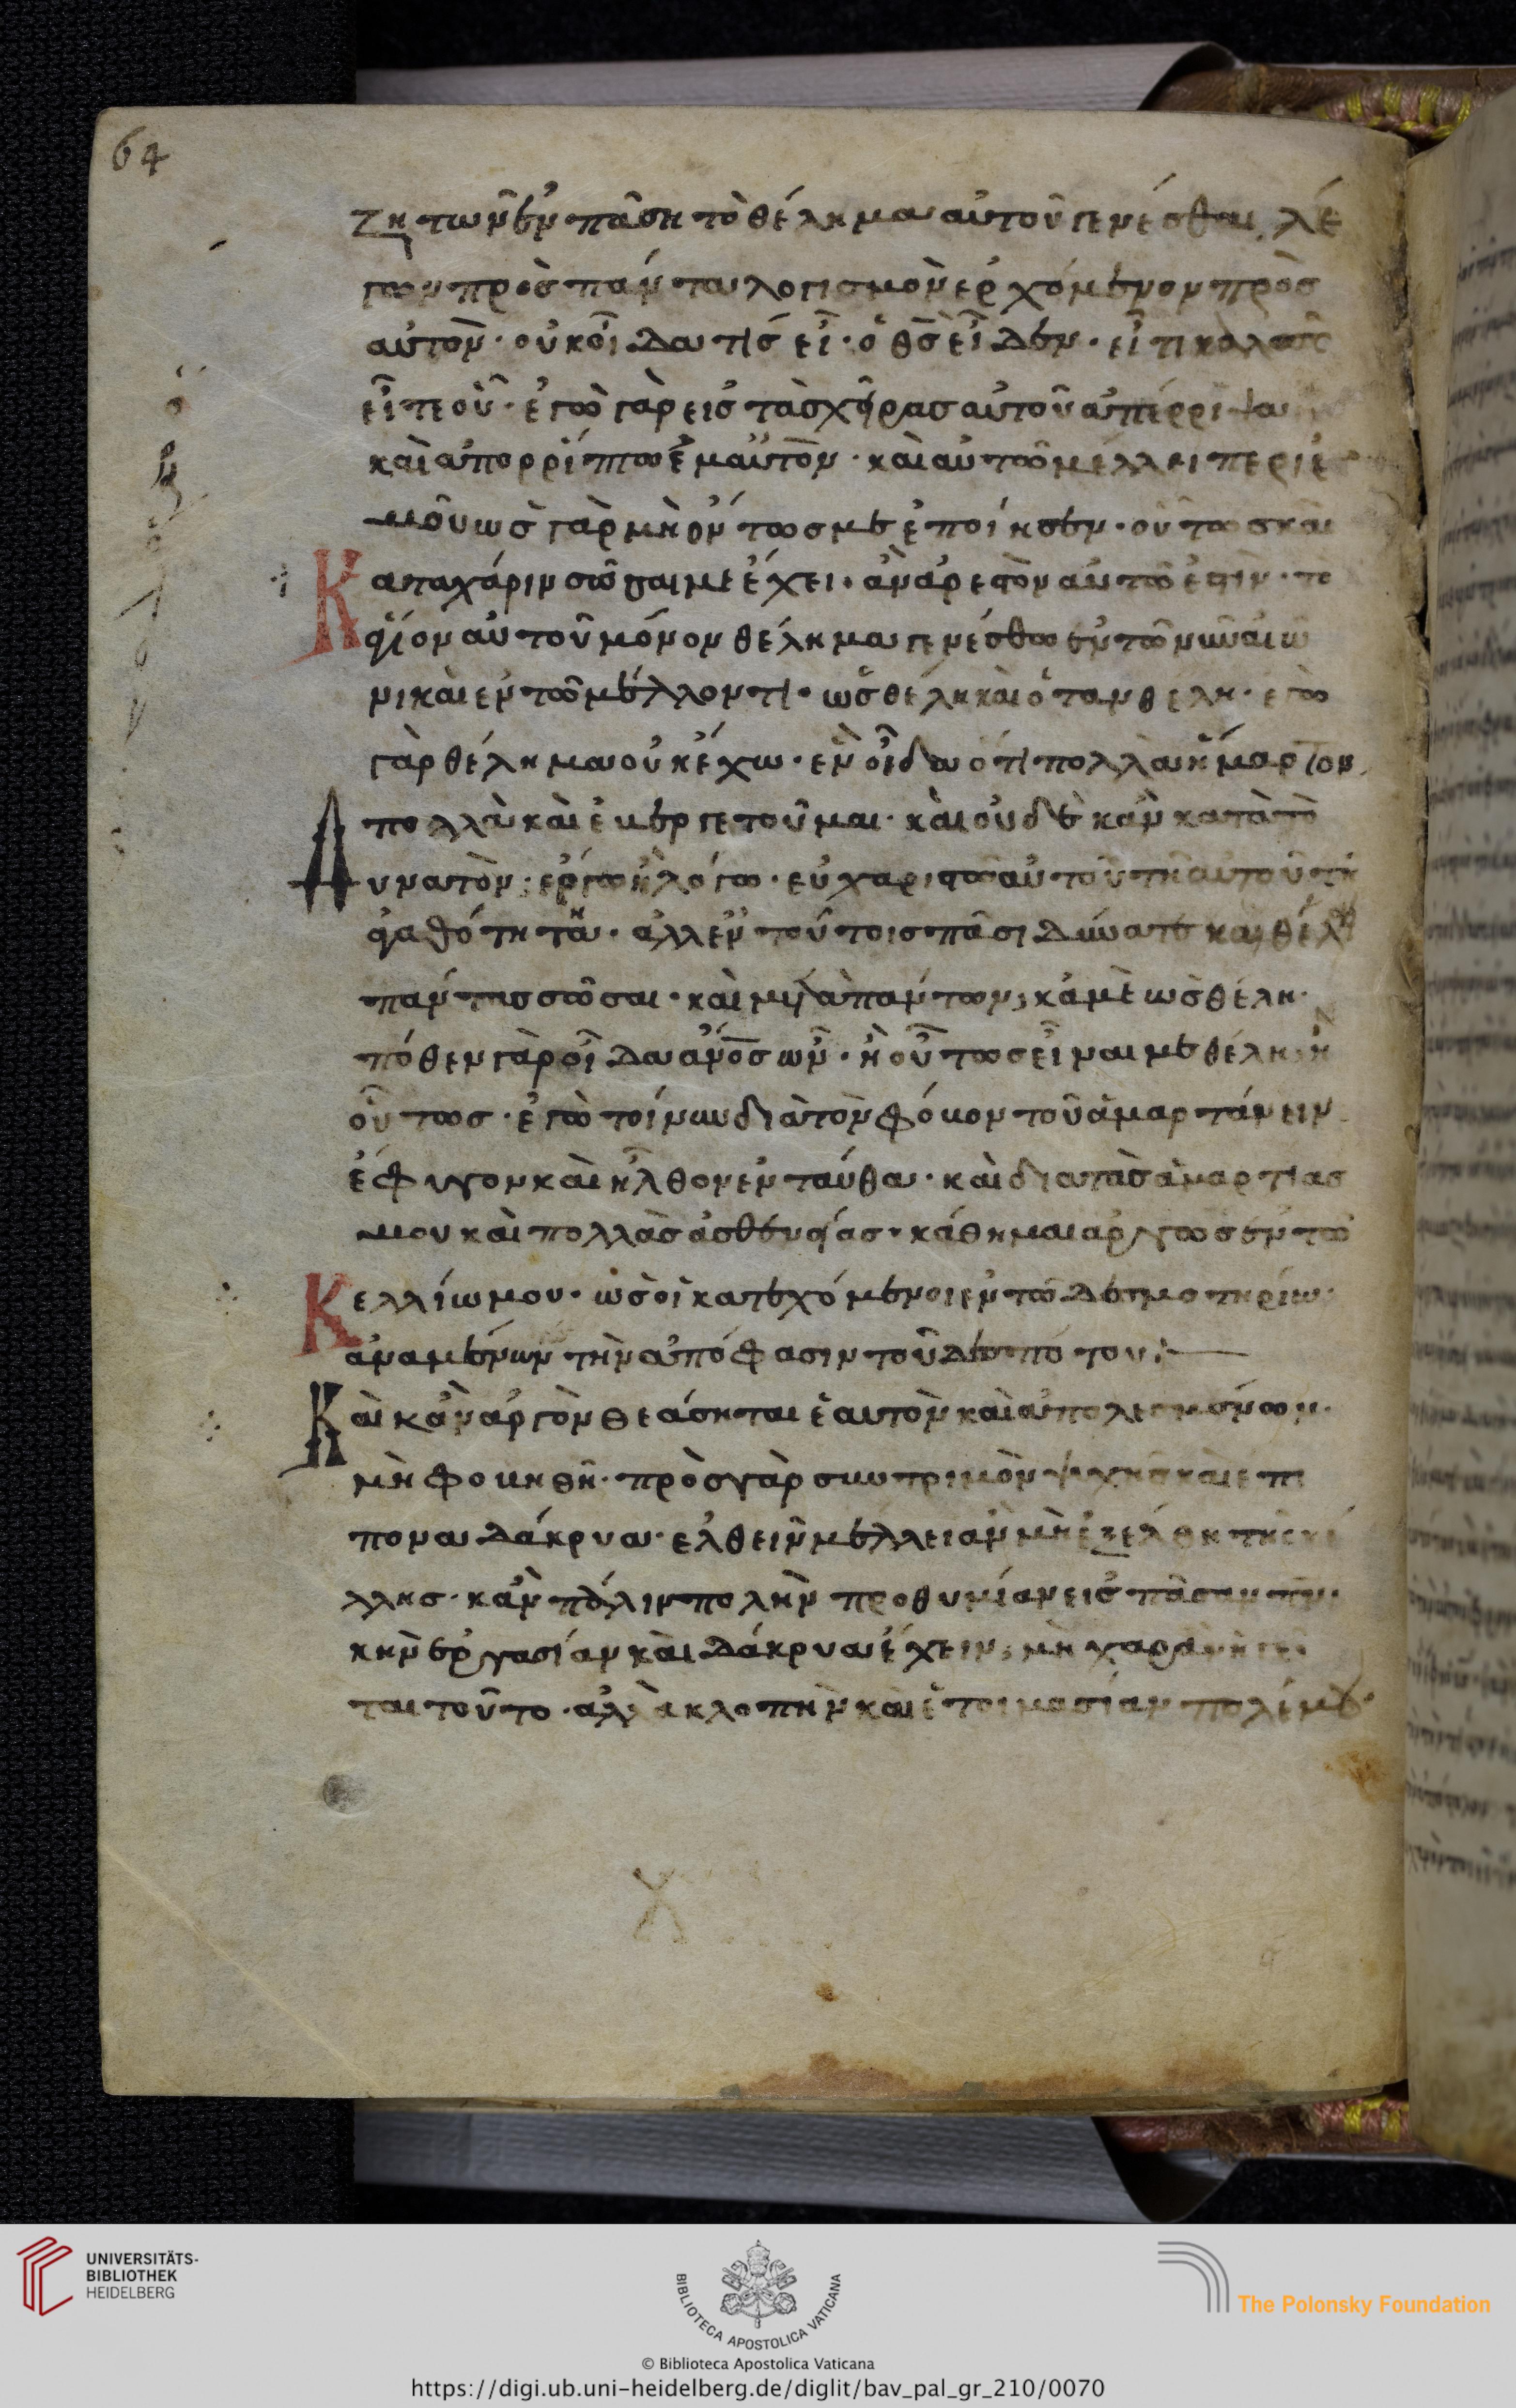 64
ζητῶν ἐν πάση τὸ θέλημα αὐτοῦ γενέσθαι, λέ
γων πρὸς πάντα λογισμὸν ἐρχόμενον πρὸς
αὐτὸν· οὐκ οἶδα τίς εἶ· ὁ θς εἶδεν· εἶ τι καλὸν
εἶπε οὖν· ἐγὼ γὰρ εἰς τὰς χεῖρας αὐτοῦ ἀπέρριψα
καὶ ἀπορρίπτω ἐμαυτὸν· καὶ αὐτῶ μέλλει περὶ ἐ
μοῦ ὡς γὰρ μὴ ὄντως με ἐποίησεν· οὕτως καὶ
Κατα χάριν σῶσαι με ἔχει· ἂν ἀρεστὸν αὐτῶ ἐστιν· τὸ
θεῖον αὐτοῦ μόνον θέλημα γενέσθω ἐν τῶ νῦν αἰῶ
νι καὶ ἐν τῶ μέλλοντι· ὡς θέλη καὶ ὅταν θέλη· ἐγὼ
γὰρ θέλημα οὐκ ἔχω· ἓν οἶδα ὅτι πολλὰ ἥμαρτον,
πολλὰ καὶ εὐεργετοῦμαι· καὶ οὐδὲ κἂν κατὰ τὸ
Δυνατὸν, ἔργω ἢ λόγω· εὐχαριστῶ αὐτοῦ τῆ αὐτοῦ
ἀγαθότητι· ἀλλ ἐν τούτοις πᾶσι δύναται καὶ θέλει
πάντας σῶσαι· καὶ μετὰ πάντων, κἀμὲ ὡς θέλη·
πόθεν γὰρ οἶδα ἄνος ὢν· ἢ οὕτως εἶναι με θέλη, ἢ
οὕτως· ἐγὼ τοίνυν διὰ τὸν φόβον τοῦ ἁμαρτάνειν
ἔφυγον καὶ ἦλθον ἐνταῦθα· καὶ διὰ τὰς ἁμαρτίας
μου καὶ πολλὰς ἀσθενείας· κάθημαι ἀργῶς ἐν τῶ
Κελλίω μου· ὡς οἱ κατεχόμενοι ἐν τῶ δεσμωτηρίω·
ἀναμένων τὴν ἀπόφασιν τοῦ δεσπότου:
Καὶ κἂν ἀργὸν θεάσηται ἑαυτὸν καὶ
μὴ φοβηθῆ· πρὸς γὰρ συντριμμὸν ψυχῆς καὶ ἐπί
πονα δάκρυα· ἐλθεῖν μέλλει ἂν μὴ ἐξέλθη τῆς κέ
λλης· κἂν πάλιν πολλὴν προθυμίαν εἰς πᾶσαν πνευματι
κὴν ἐργασίαν καὶ δάκρυα ἔχειν, μὴ
ται τοῦτο· ἀλλὰ κλοπὴν καὶ ἑτοιμασίαν πολέμου
UNIVERSITÄTS-
BIBLIOTHEK
HEIDELBERG
BIBLIOTECA APOSTOLICA VATICANA
The Polonsky Foundation
© Biblioteca Apostolica Vaticana
https://digi.ub.uni-heidelberg.de/diglit/bav_pal_gr_210/0070